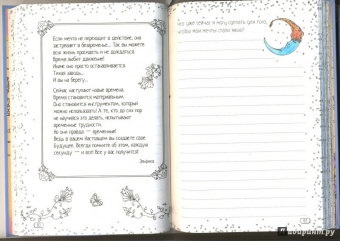 Если мечта не переходит в действие, она
застревает в безвременье... Так вы можете
всю жизнь просидеть и не дождаться.
Время любит движение!
Иначе оно просто останавливается.
Тихая заводь...
И вы на берегу...
Сейчас наступают новые времена.
Время становится материальным.
Оно становится инструментом, который
можно использовать! А те, кто до сих пор
не научился это делать, испытывают
временные трудности.
Но они правда — временные!
Ведь в вашем Настоящем вы создаете свое
Будущее. Всегда помните об этом, каждую
секунду — и все! Все у вас получится!
Эльфика
Что уже сейчас я могу сделать для того,
чтобы мои мечты стали явью?
лабиринт.ру